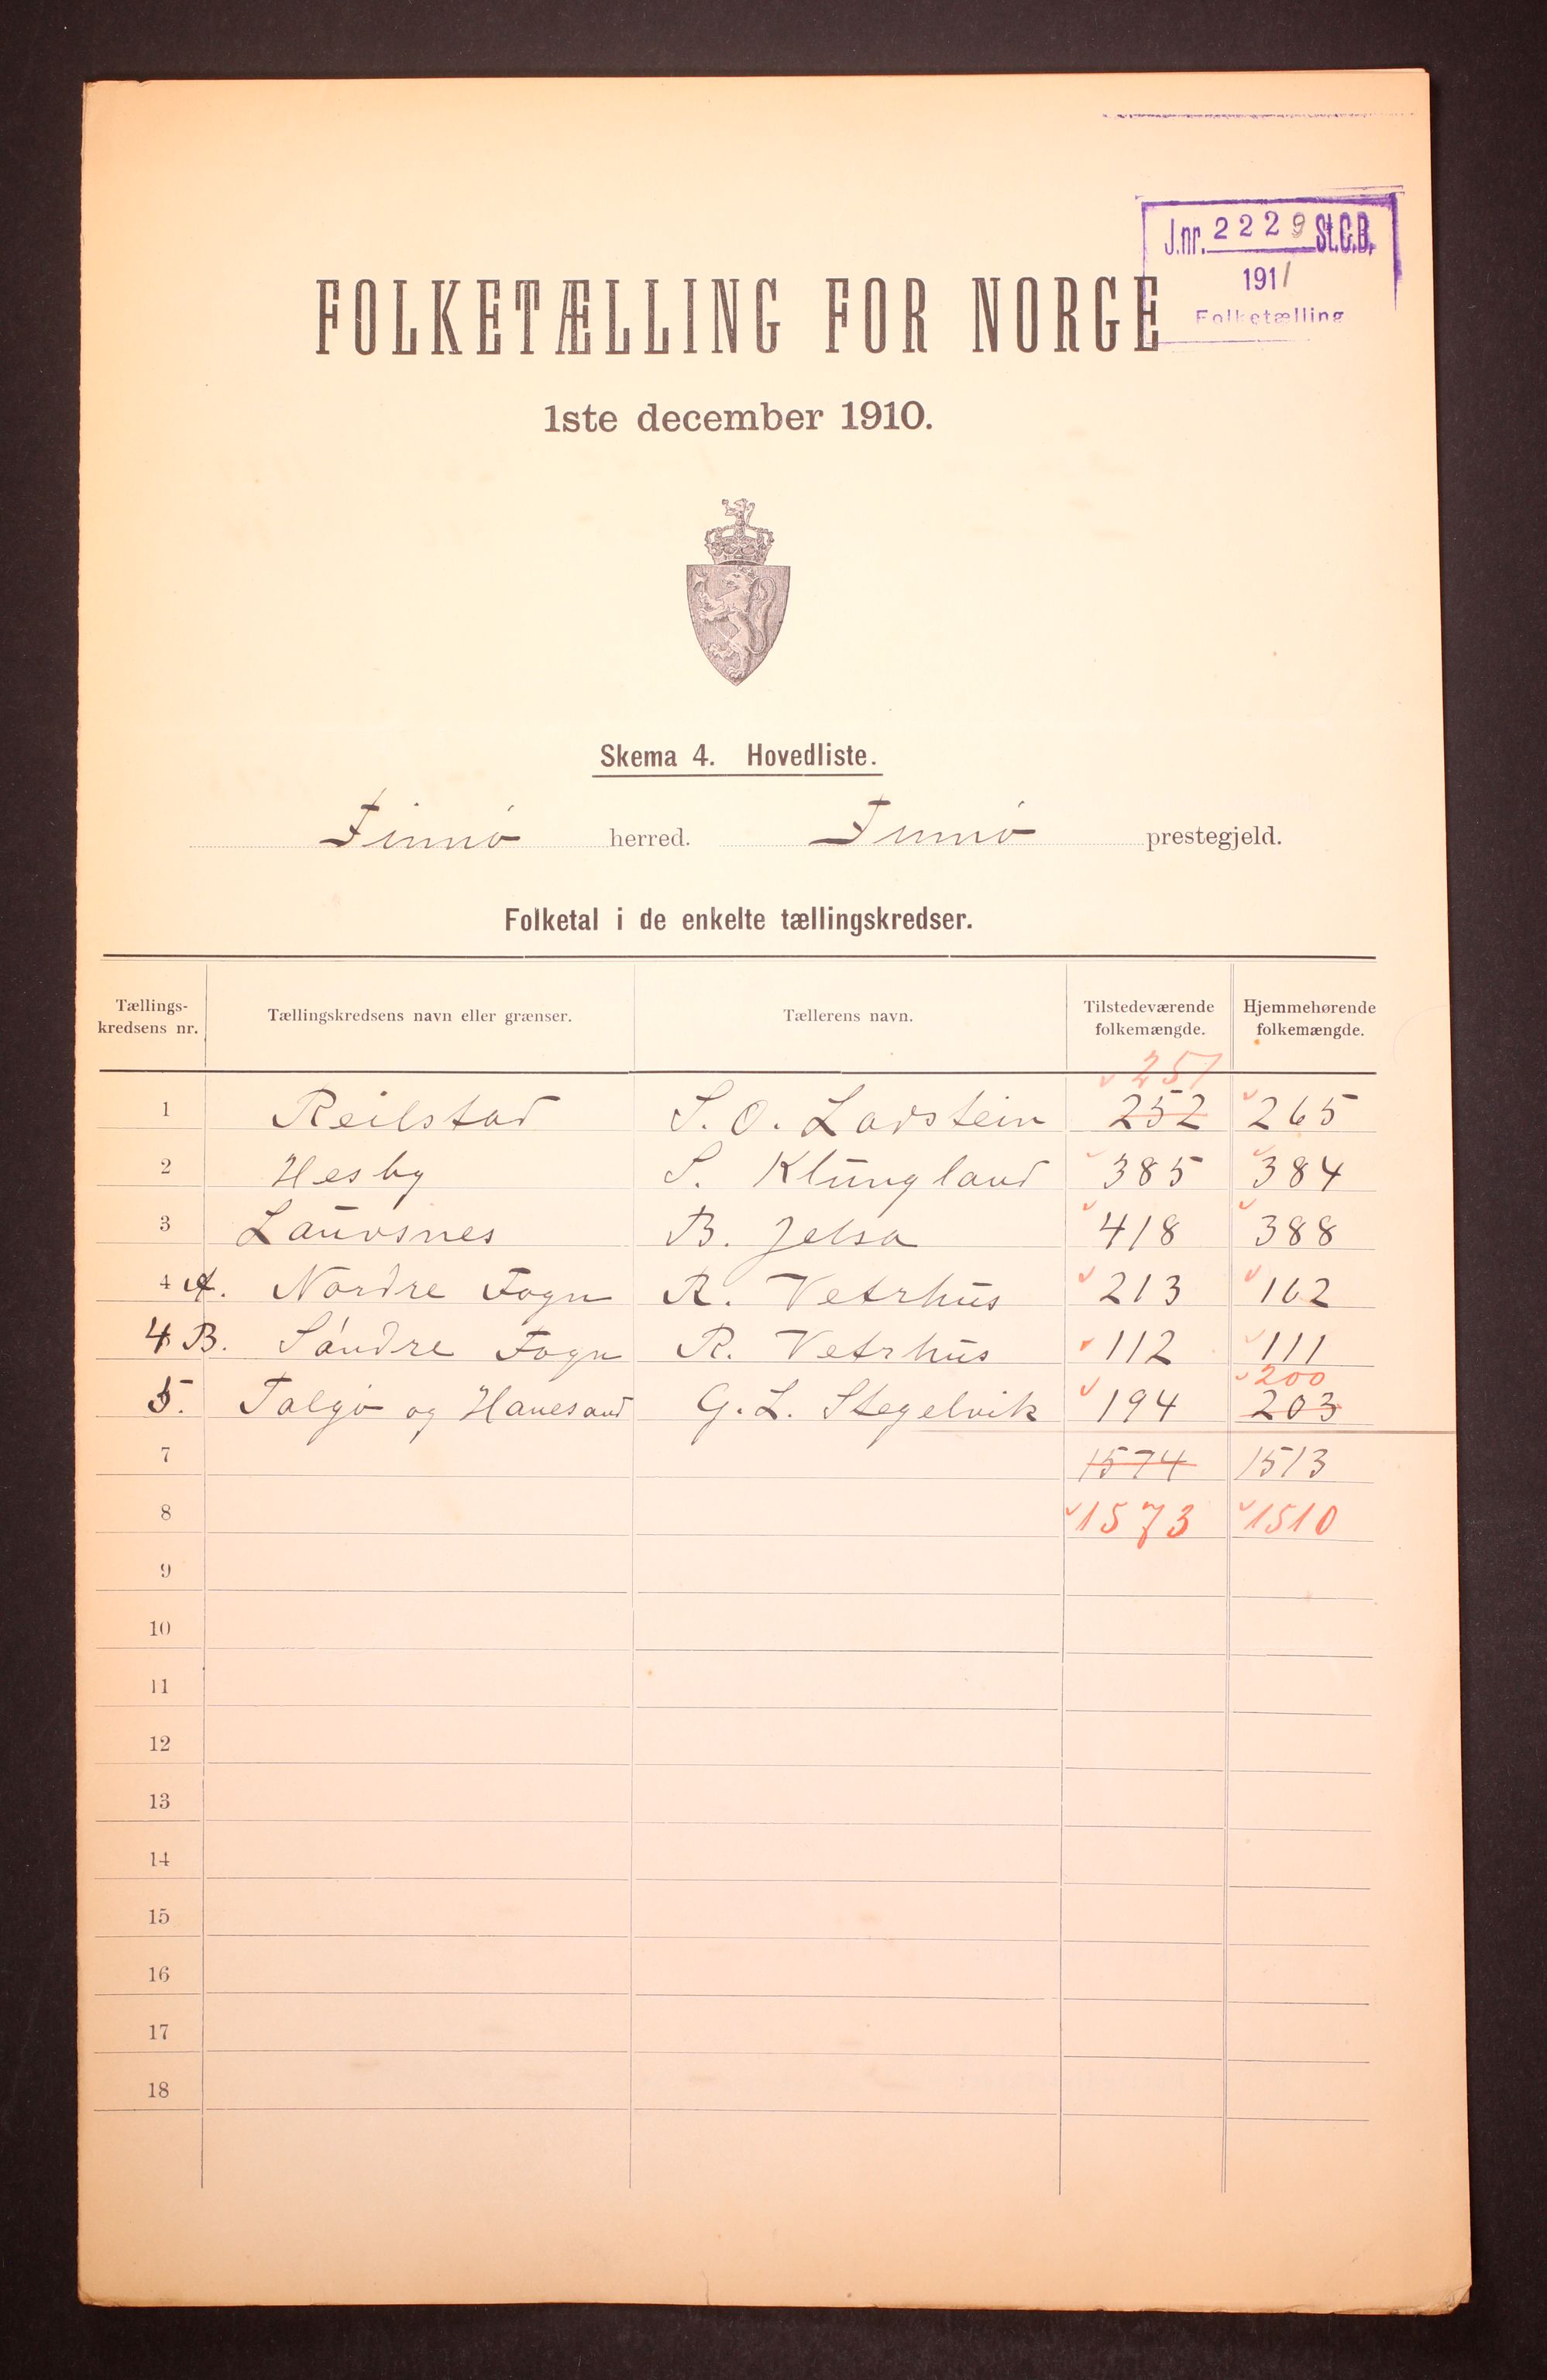 J.nr. 2229 St.C.B.
1911
Folketælling
FOLKETÆLLING FOR NORGE
1ste december 1910.
Skema 4. Hovedliste.
Finnö herred. Finnö prestegjeld.
Folketal i de enkelte tællingskredser.
Tællingskredsens nr. Tællingskredsens navn eller grænser. Tællerens navn. Tilstedeværende folkemængde. Hjemmehørende folkemængde.
251
1 Reilstad S. O. Ladstein 252 265
2 Hesby S. Klungland 385 384
3 Lauvsnes B. Jelsa 418 388
4 A. Nordre Fogn R. Vetrhus 213 162
4 B. Söndre Fogn R. Vetrhus 112 111
200
5. Talgö og Hanesand G. L. Stegelvik 194 203
7 1574 1513
8 1573 1510
9
10
11
12
13
14
15
16
17
18